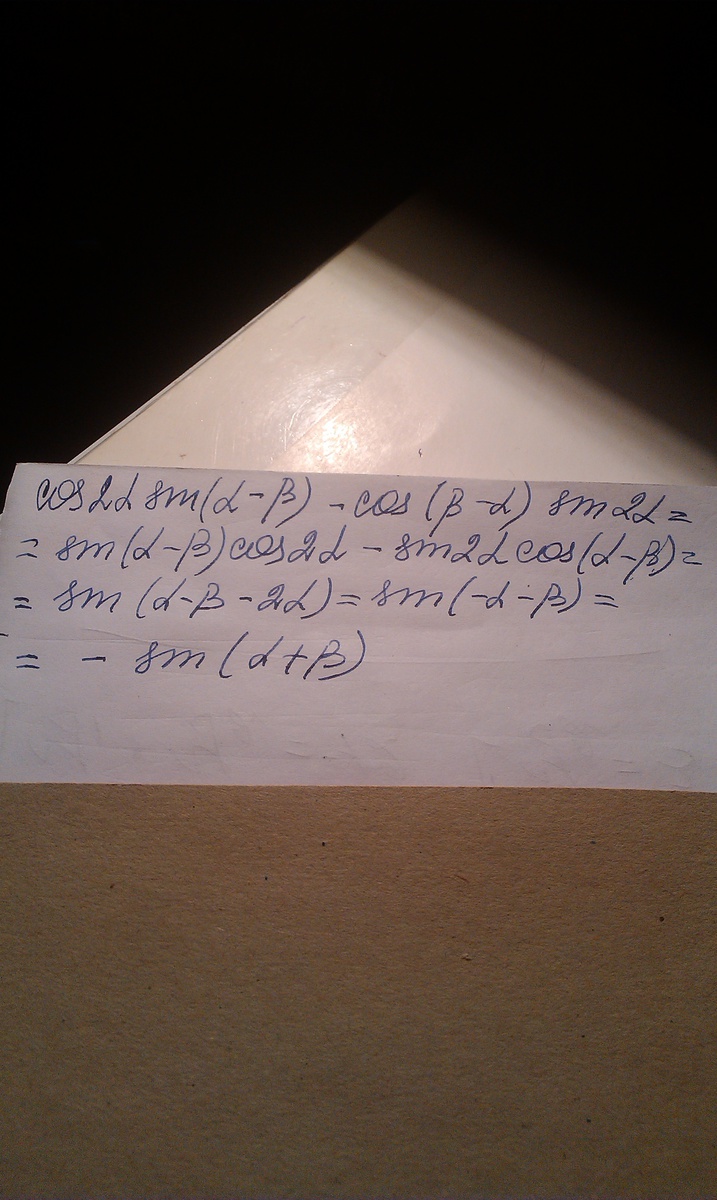 cos2α sin(α-β) - cos(β-α) sin2α =
= sin(α-β)cos2α - sin2α cos(α-β) =
= sin(α-β-2α) = sin(-α-β) =
= - sin(α+β)